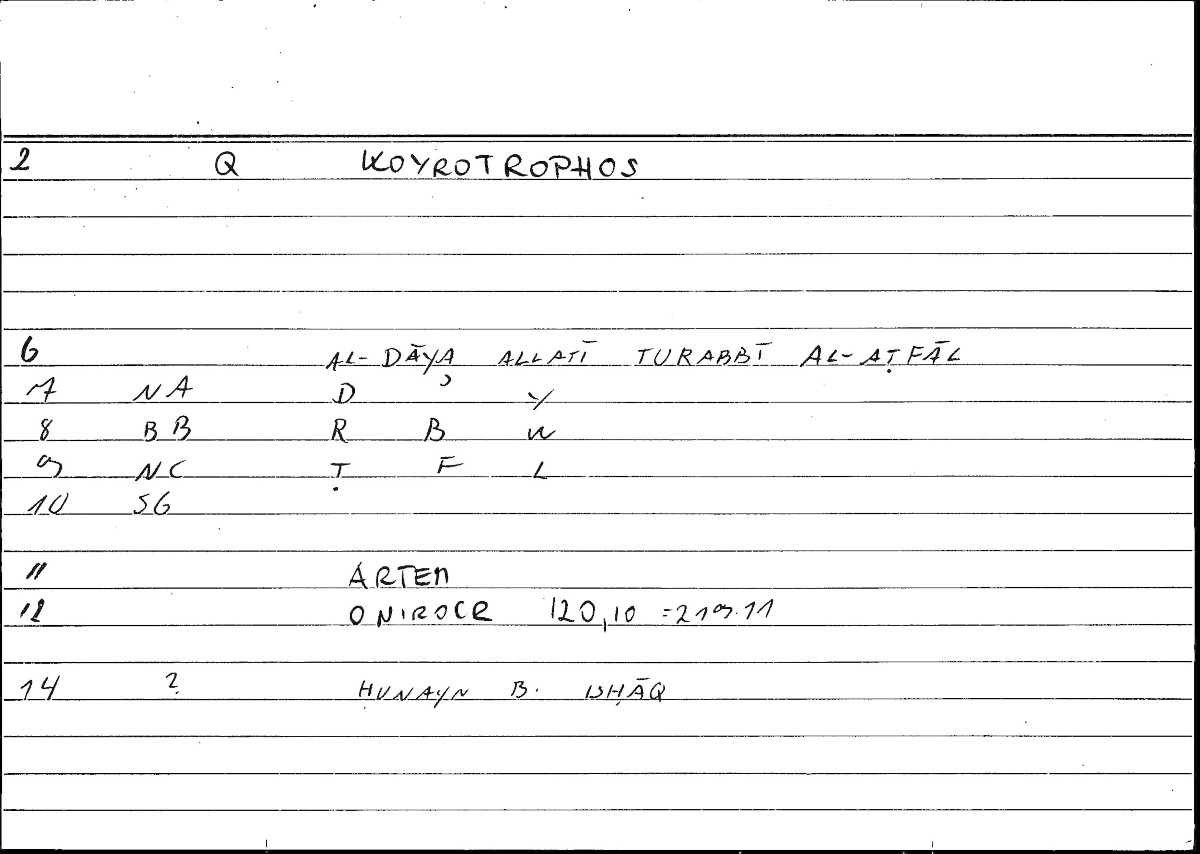 2 Q KOYROTROPHOS
6 AL-DĀYA ALLATĪ TURABBĪ AL-AṬFĀL
7 NA D ʾ Y
8 BB R B W
9 NC Ṭ F L
10 SG
11 ARTEM
12 ONIROCR 120,10 =219.11
14 ? ḤUNAYN B. ISḤĀQ